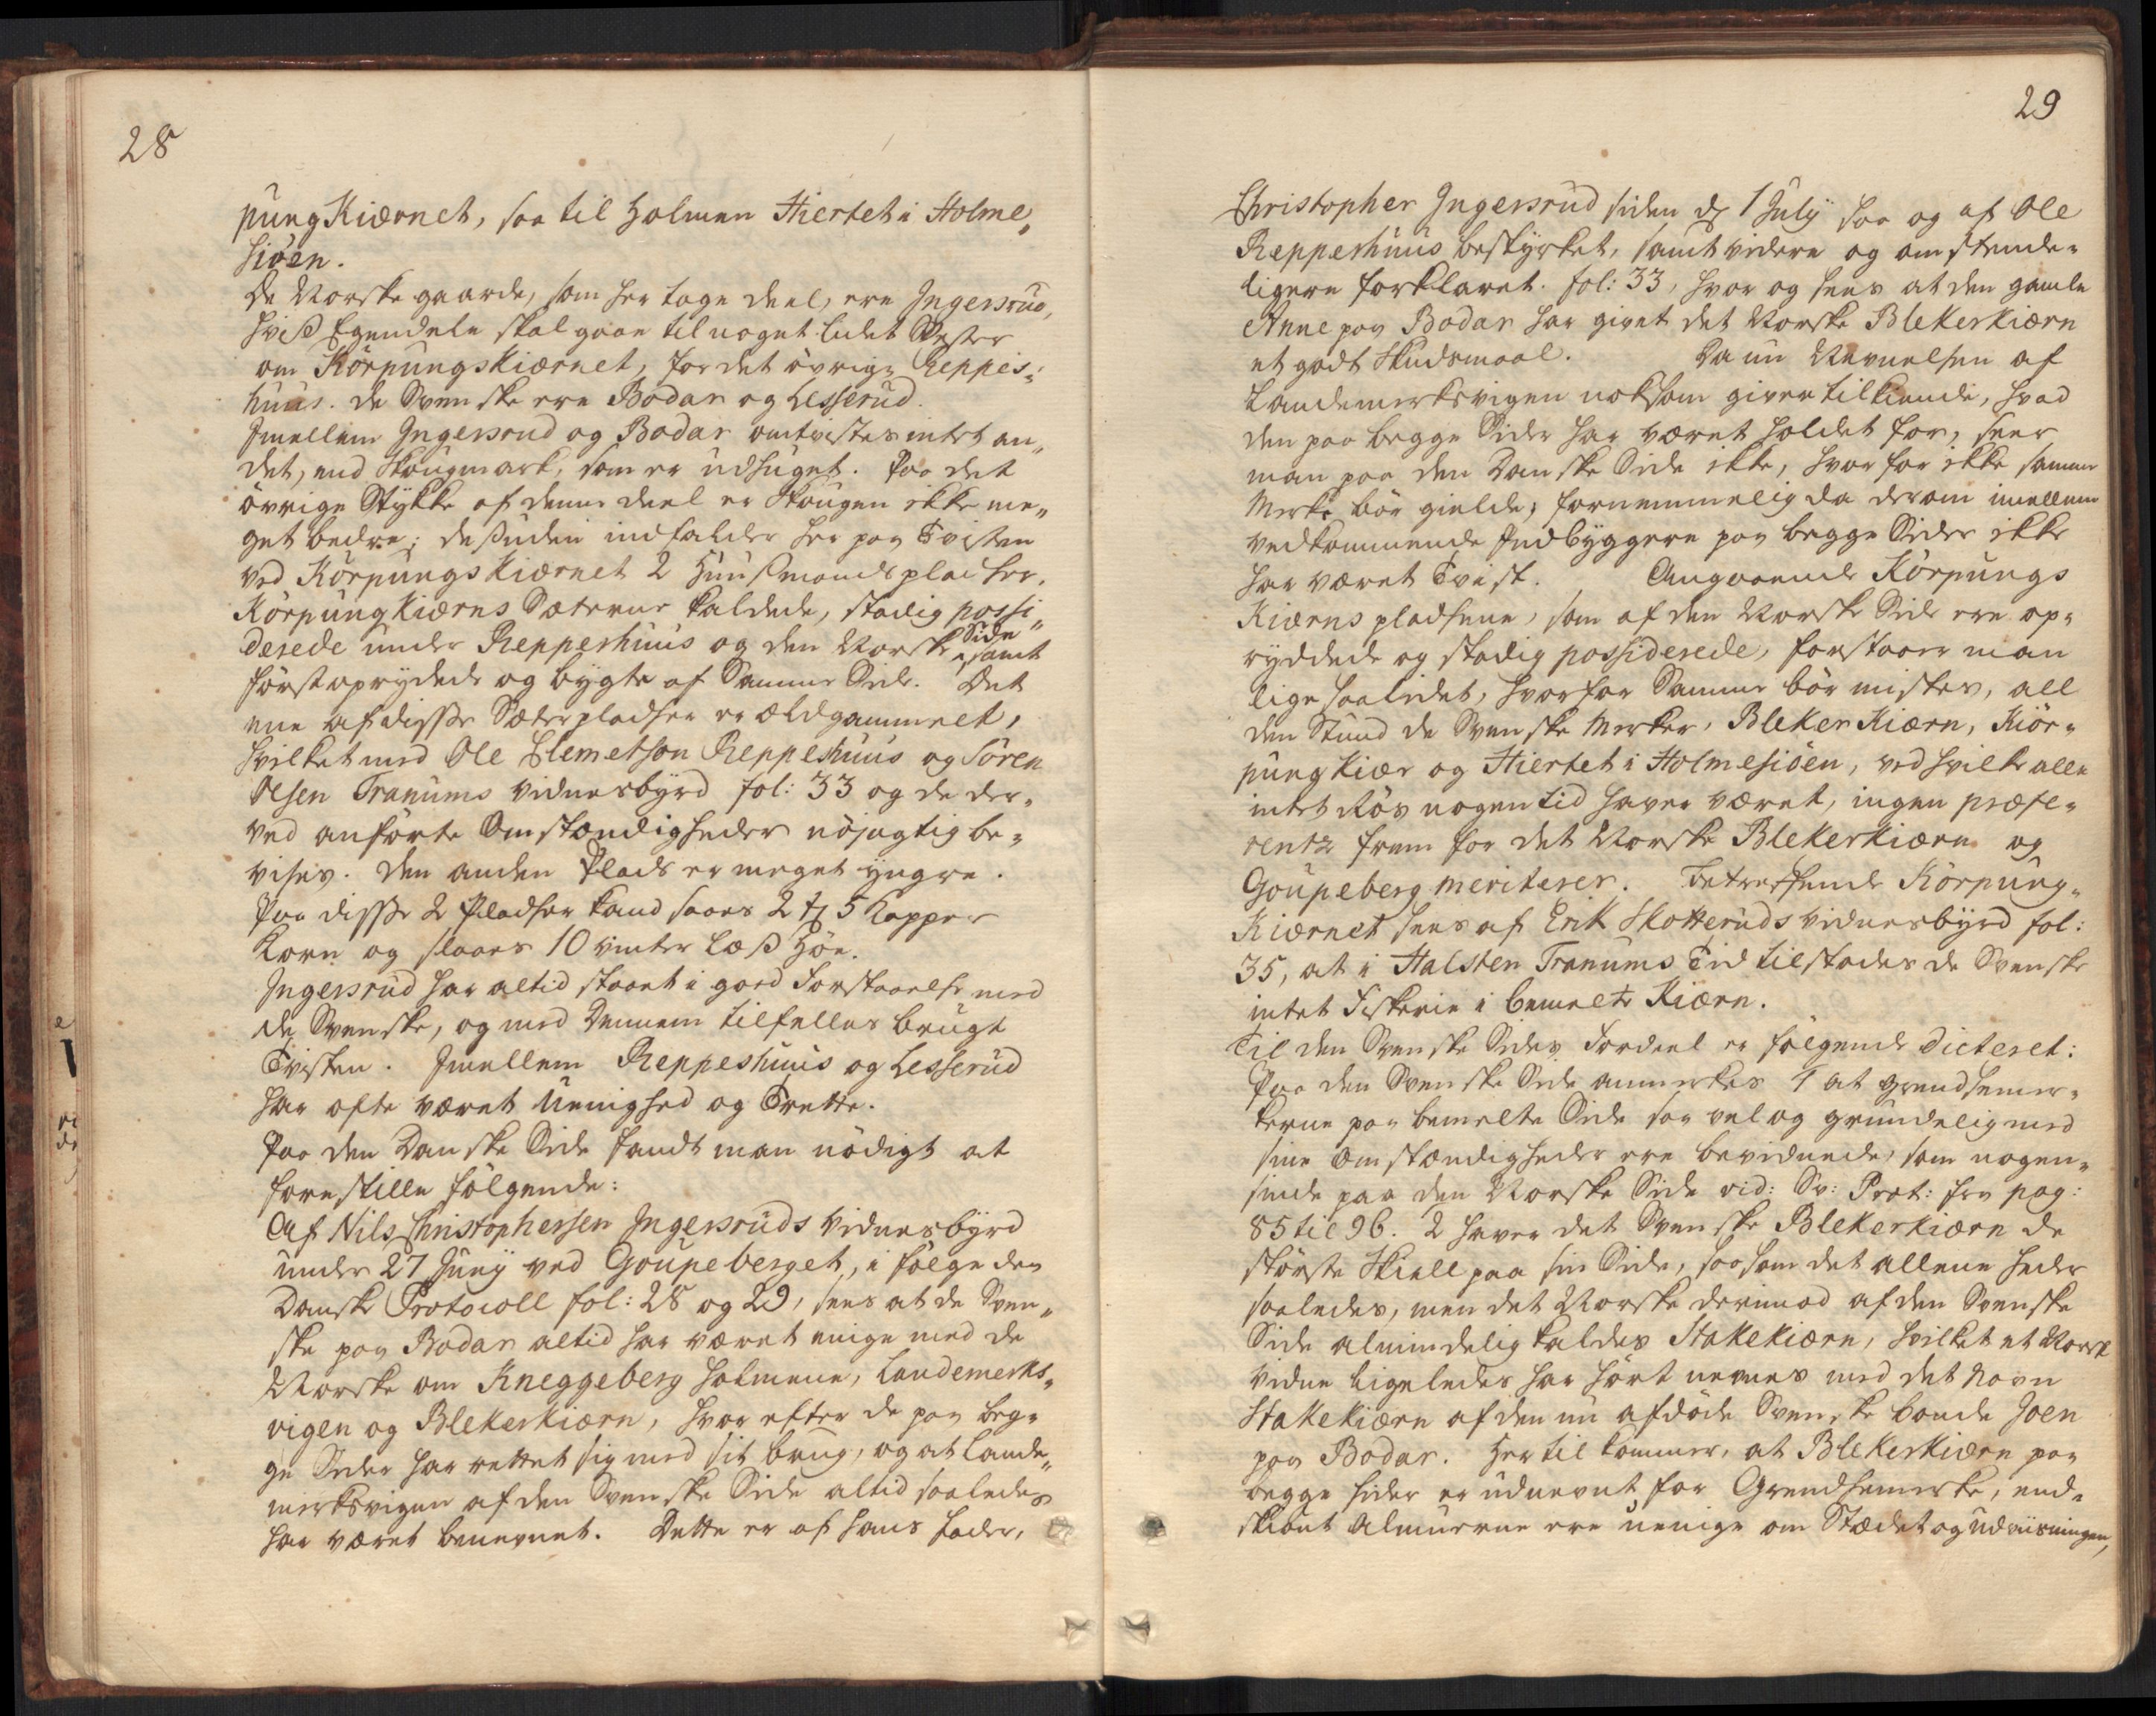 28
pung Kiærnet, saa til Holmen Hiertet i Holme,,
siöen.
De Norske gaarde, som her tage deel, ere Ingersrud,
hviß Egendeele skal gaae til noget lidet Vester
om Körpungskiærnet, for det övrige Reppes-
huus. De Svenske ere Bodar og Lesserud.
Imellem Ingersrud og Bodar omtvistes intet an,,
det, end Skougmark, som er udhuget. Paa det
övrige Stykke af denne deel er Skougen ikke me,,
get bedre; deßuden indfalder her paa Tvisten
ved Körpungs Kiærnet 2 Huusmands pladser,
Körpung Kiærns Sæterne kaldede, stadig possi,,
derede under Reppeshuus og den Norske Side samt
först oprydede og bygte af Samme Side. Det
ene af disse Sæterpladser er ældgammelt,
hvilket med Ole Clemetson Reppeshuus og Sören
Olsen Tranums vidnesbyrd fol: 33 og de der-
ved anförte Omstændigheder nöjagtig be-
vises. Den anden Plads er meget yngre.
Paa disse 2 Pladser kand saaes 2 tr 5 Kapper
Korn og slaaes 10 vinter Læß Höe.
Ingersrud har altid staaet i goed Forstaaelse med
de Svenske, og med Dennem tilfelles brugt
Tvisten. Imellem Reppeshuus og Lesserud
har ofte været Uenighed og Trette.
Paa den Danske Side fandt man nödigt at
forestille fölgende:
Af Nils Christophersen Ingersruds Vidnesbyrd
under 27 Juny ved Goupeberget, i fölge den
Danske Protocoll fol: 28 og 29, sees at de Sven,,
ske paa Bodar altid har været enige med de
Norske om Kneggeberg holmene, Landemerks,,
vigen og Blekerkiærn, hvor efter de paa beg-
ge Sider har rettet sig med sit brug, og at Lande,,
merksvigen af den Svenske Side altid saaledes
har været benevnet. Dette er af hans fader,
29
Christopher Ingersrud siden d 1 July saa og af Ole
Reppeshuus bestyrket, samt videre og omstende-
ligere forklaret. fol: 33, hvor og sees at den gamle
Anne paa Bodar har givet det Norske Blekerkiærn
et godt Skudsmaal. Da nu Nevnelsen af
Landemerksvigen noksom giver tilkiende, hvad
den paa begge Sider har været holdet for, seer
man paa den Danske Side ikke, hvorfor ikke samme
Merke bör gielde; fornemmelig da derom imellem
vedkommende Indbyggere paa begge Sider ikke
har været Tvist. Angaaende Körpungs
Kiærns pladsene, som af den Norske Side ere op-
ryddede og stadig possiderede, forstaaer man
lige saalidet, hvorfor Samme bör mistes, all
den Stund de Svenske Merker, Bleker Kiærn, Kiör-
pung kiær og Hiertet i Holmesiöen, ved hvilke alle
intet Rös nogen tid haver været, ingen præfe-
rentz frem for det Norske Blekerkiærn og
Goupeberg meriterer. Betreffende Körpung-
Kiærnet sees af Erik Skotteruds vidnesbyrd fol:
35, at i Halsten Tranums Tid tilstodes de Svenske
intet Fiskerie i bemelte Kiærn.
Til den Svenske Sides Fordeel er fölgende dicteret:
Paa den Svenske Side anmerkes 1 at grendsemer-
kerne paa bemelte Side saa vel og grundelig med
sine Omstændigheder ere bevidnede, som nogen-
sinde paa den Norske Side vid: Sv: Prot: fra pag:
85 til 96. 2 haver det Svenske Blekerkiærn de
störste Skiell paa sin Side, saasom det allene heder
saaledes, men det Norske derimod af den Svenske
Side almindelig kaldes Stakekiærn, hvilket et Norsk
vidne ligeledes har hört nevnes med det Navn
Stakekiærn af den nu afdöde Svenske bonde Joen
paa Bodar. Her til kommer, at Blekerkiærn paa
begge sider er udnevnt for Grendsemerke, end-
skiönt Almuerne ere uenige om Stædet og Udviisningen,